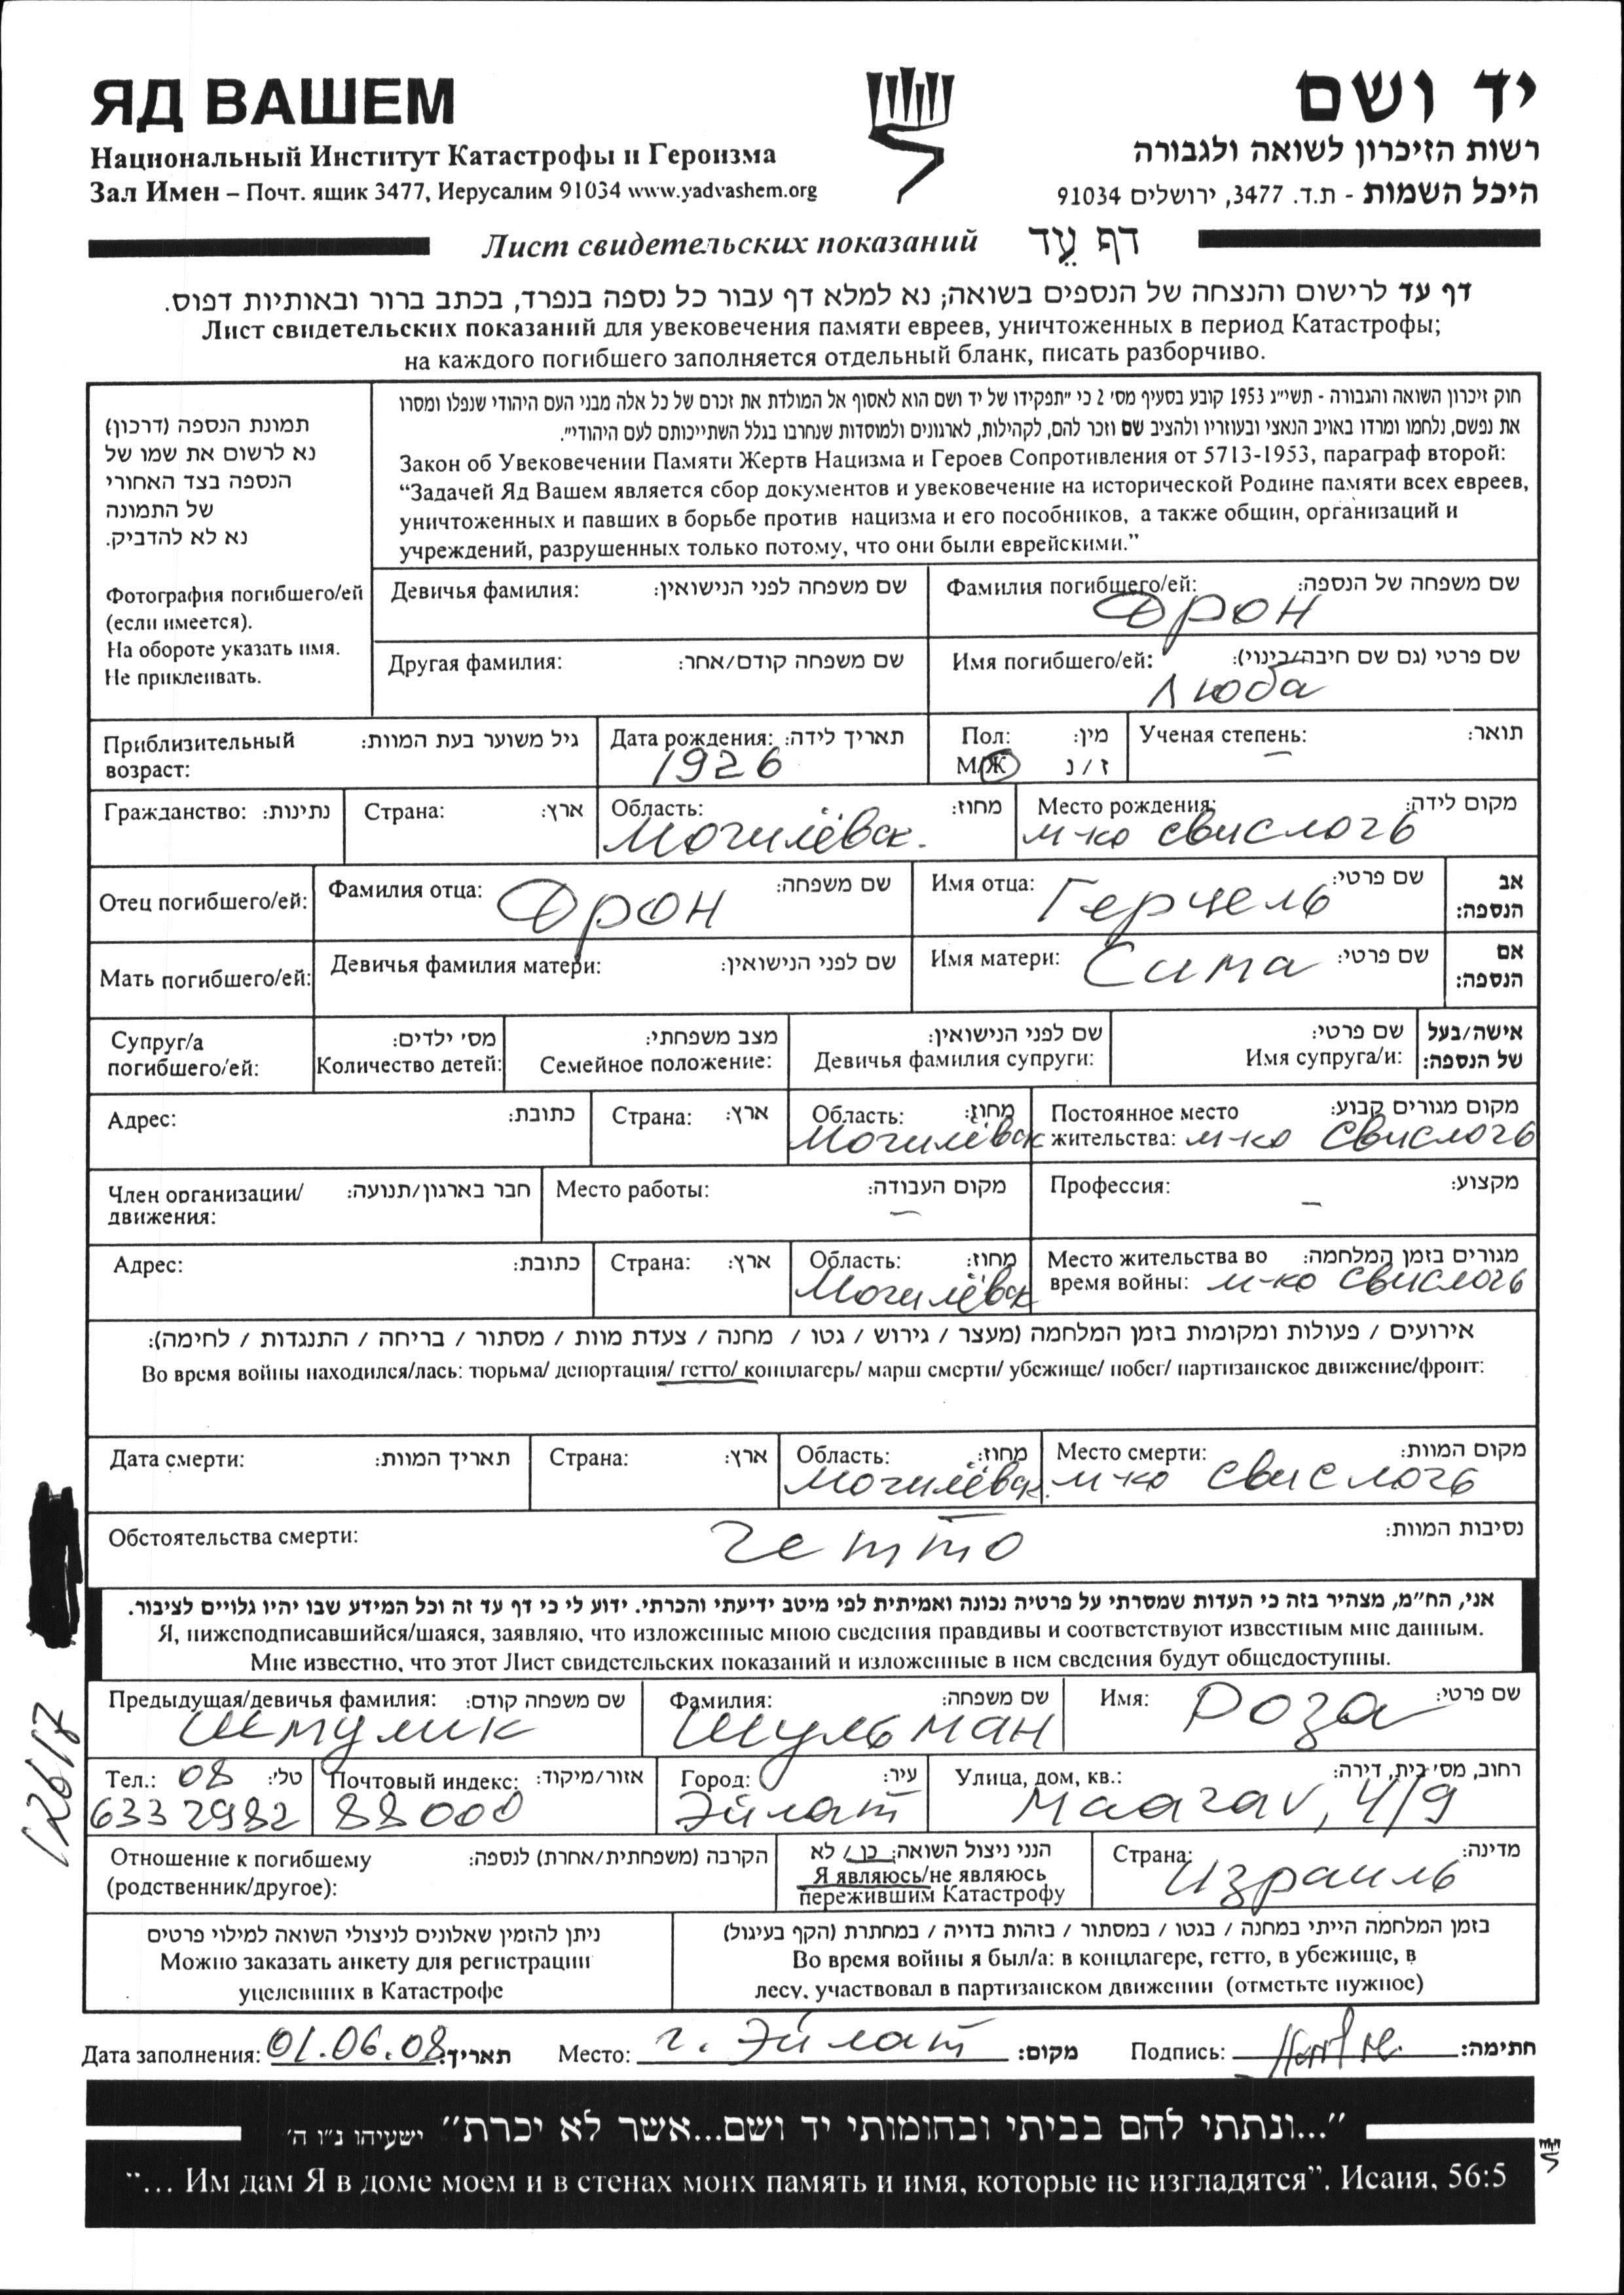 ЯД ВАШЕМ
יד ושם
Национальный Институт Катастрофы и Героизма
רשות הזיכרון לשואה ולגבורה
Зал Имен – Почт. ящик 3477, Иерусалим 91034 www.yadvashem.org
היכל השמות - ת.ד. 3477, ירושלים 91034
Лист свидетельских показаний דף עֵד
דף עד לרישום והנצחה של הנספים בשואה; נא למלא דף עבור כל נספה בנפרד, בכתב ברור ובאותיות דפוס.
Лист свидетельских показаний для увековечения памяти евреев, уничтоженных в период Катастрофы;
на каждого погибшего заполняется отдельный бланк, писать разборчиво.
תמונת הנספה (דרכון)
נא לרשום את שמו של
הנספה בצד האחורי
של התמונה
נא לא להדביק.
Фотография погибшего/ей
(если имеется).
На обороте указать имя.
Не приклеивать.
חוק זיכרון השואה והגבורה - תשי״ג 1953 קובע בסעיף מס׳ 2 כי ״תפקידו של יד ושם הוא לאסוף אל המולדת את זכרם של כל אלה מבני העם היהודי שנפלו ומסרו
את נפשם, נלחמו ומרדו באויב הנאצי ובעוזריו ולהציב שם וזכר להם, לקהילות, לארגונים ולמוסדות שנחרבו בגלל השתייכותם לעם היהודי״.
Закон об Увековечении Памяти Жертв Нацизма и Героев Сопротивления от 5713-1953, параграф второй:
“Задачей Яд Вашем является сбор документов и увековечение на исторической Родине памяти всех евреев,
уничтоженных и павших в борьбе против нацизма и его пособников, а также общин, организаций и
учреждений, разрушенных только потому, что они были еврейскими.”
Девичья фамилия: שם משפחה לפני הנישואין:
Фамилия погибшего/ей: שם משפחה של הנספה:
Дрон
Другая фамилия: שם משפחה קודם/אחר:
Имя погибшего/ей: שם פרטי (גם שם חיבה/כינוי):
Люба
Приблизительный возраст: גיל משוער בעת המוות:
Дата рождения: תאריך לידה:
1926
Пол: מין:
М/Ж ז / נ
Ученая степень: תואר:
–
Гражданство: נתינות:
Страна: ארץ:
Область: מחוז:
Могилёвск.
Место рождения: מקום לידה:
м-ко Свислочь
Отец погибшего/ей:
Фамилия отца: שם משפחה:
Дрон
Имя отца: שם פרטי:
Герцель
אב הנספה:
Мать погибшего/ей:
Девичья фамилия матери: שם לפני הנישואין:
Имя матери: שם פרטי:
Сима
אם הנספה:
Супруг/а погибшего/ей:
מס׳ ילדים:
Количество детей:
מצב משפחתי:
Семейное положение:
שם לפני הנישואין:
Девичья фамилия супруги:
שם פרטי:
Имя супруга/и:
אישה/בעל של הנספה:
Адрес: כתובת:
Страна: ארץ:
Область: מחוז:
Могилёвск
Постоянное место מקום מגורים קבוע:
жительства: м-ко Свислочь
Член организации/ движения: חבר בארגון/תנועה:
Место работы: מקום העבודה:
–
Профессия: מקצוע:
–
Адрес: כתובת:
Страна: ארץ:
Область: מחוז:
Могилёвск
Место жительства во מגורים בזמן המלחמה:
время войны: м-ко Свислочь
אירועים / פעולות ומקומות בזמן המלחמה (מעצר / גירוש / גטו / מחנה / צעדת מוות / מסתור / בריחה / התנגדות / לחימה):
Во время войны находился/лась: тюрьма/ депортация/ гетто/ концлагерь/ марш смерти/ убежище/ побег/ партизанское движение/фронт:
Дата смерти: תאריך המוות:
Страна: ארץ:
Область: מחוז:
Могилёвск.
Место смерти: מקום המוות:
м-ко Свислочь
Обстоятельства смерти: נסיבות המוות:
гетто
אני, הח״מ, מצהיר בזה כי העדות שמסרתי על פרטיה נכונה ואמיתית לפי מיטב ידיעתי והכרתי. ידוע לי כי דף עד זה וכל המידע שבו יהיו גלויים לציבור.
Я, нижеподписавшийся/шаяся, заявляю, что изложенные мною сведения правдивы и соответствуют известным мне данным.
Мне известно, что этот Лист свидетельских показаний и изложенные в нем сведения будут общедоступны.
Предыдущая/девичья фамилия: שם משפחה קודם:
Шмулик
Фамилия: שם משפחה:
Шульман
Имя: שם פרטי:
Роза
Тел.: 08 טל׳:
6332982
Почтовый индекс: אזור/מיקוד:
88000
Город: עיר:
Эйлат
Улица, дом, кв.: רחוב, מס׳ בית, דירה:
Маагаv, 4/9
Отношение к погибшему הקרבה (משפחתית/אחרת) לנספה:
(родственник/другое):
הנני ניצול השואה: כן / לא
Я являюсь/не являюсь
пережившим Катастрофу
Страна: מדינה:
Израиль
ניתן להזמין שאלונים לניצולי השואה למילוי פרטים
Можно заказать анкету для регистрации
уцелевших в Катастрофе
בזמן המלחמה הייתי במחנה / בגטו / במסתור / בזהות בדויה / במחתרת (הקף בעיגול)
Во время войны я был/а: в концлагере, гетто, в убежище, в
лесу, участвовал в партизанском движении (отметьте нужное)
Дата заполнения: 01.06.08 תאריך: Место: г. Эйлат מקום: Подпись: חתימה:
״...ונתתי להם בביתי ובחומותי יד ושם...אשר לא יכרת״ ישעיהו נ״ו ה׳
“... Им дам Я в доме моем и в стенах моих память и имя, которые не изгладятся”. Исаия, 56:5
12617